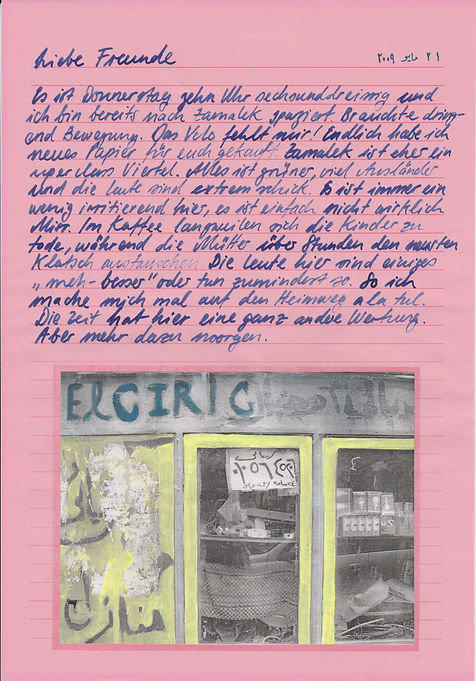 Liebe Freunde
٢١ مايو ٢٠٠٩
Es ist Donnerstag zehn Uhr sechsunddreissig und
ich bin bereits nach Zamalek spaziert. Brauchte dring-
end Bewegung. Das Velo fehlt mir! Endlich habe ich
neues Papier für euch gekauft. Zamalek ist eher ein
super class Viertel. Alles ist grüner, viel Ausländer
und die Leute sind extrem schick. Es ist immer ein
wenig irritierend hier, es ist einfach nicht wirklich
Misr. Im Kaffee langweilen sich die Kinder zu
tode, während die Mütter über Stunden den neusten
Klatsch austauschen. Die Leute hier sind einiges
„meh-besser" oder tun zumindest so. So ich
mache mich mal auf den Heimweg a la tul.
Die Zeit hat hier eine ganz andere Wertung.
Aber mehr dazu moorgen.
ElCIRIC